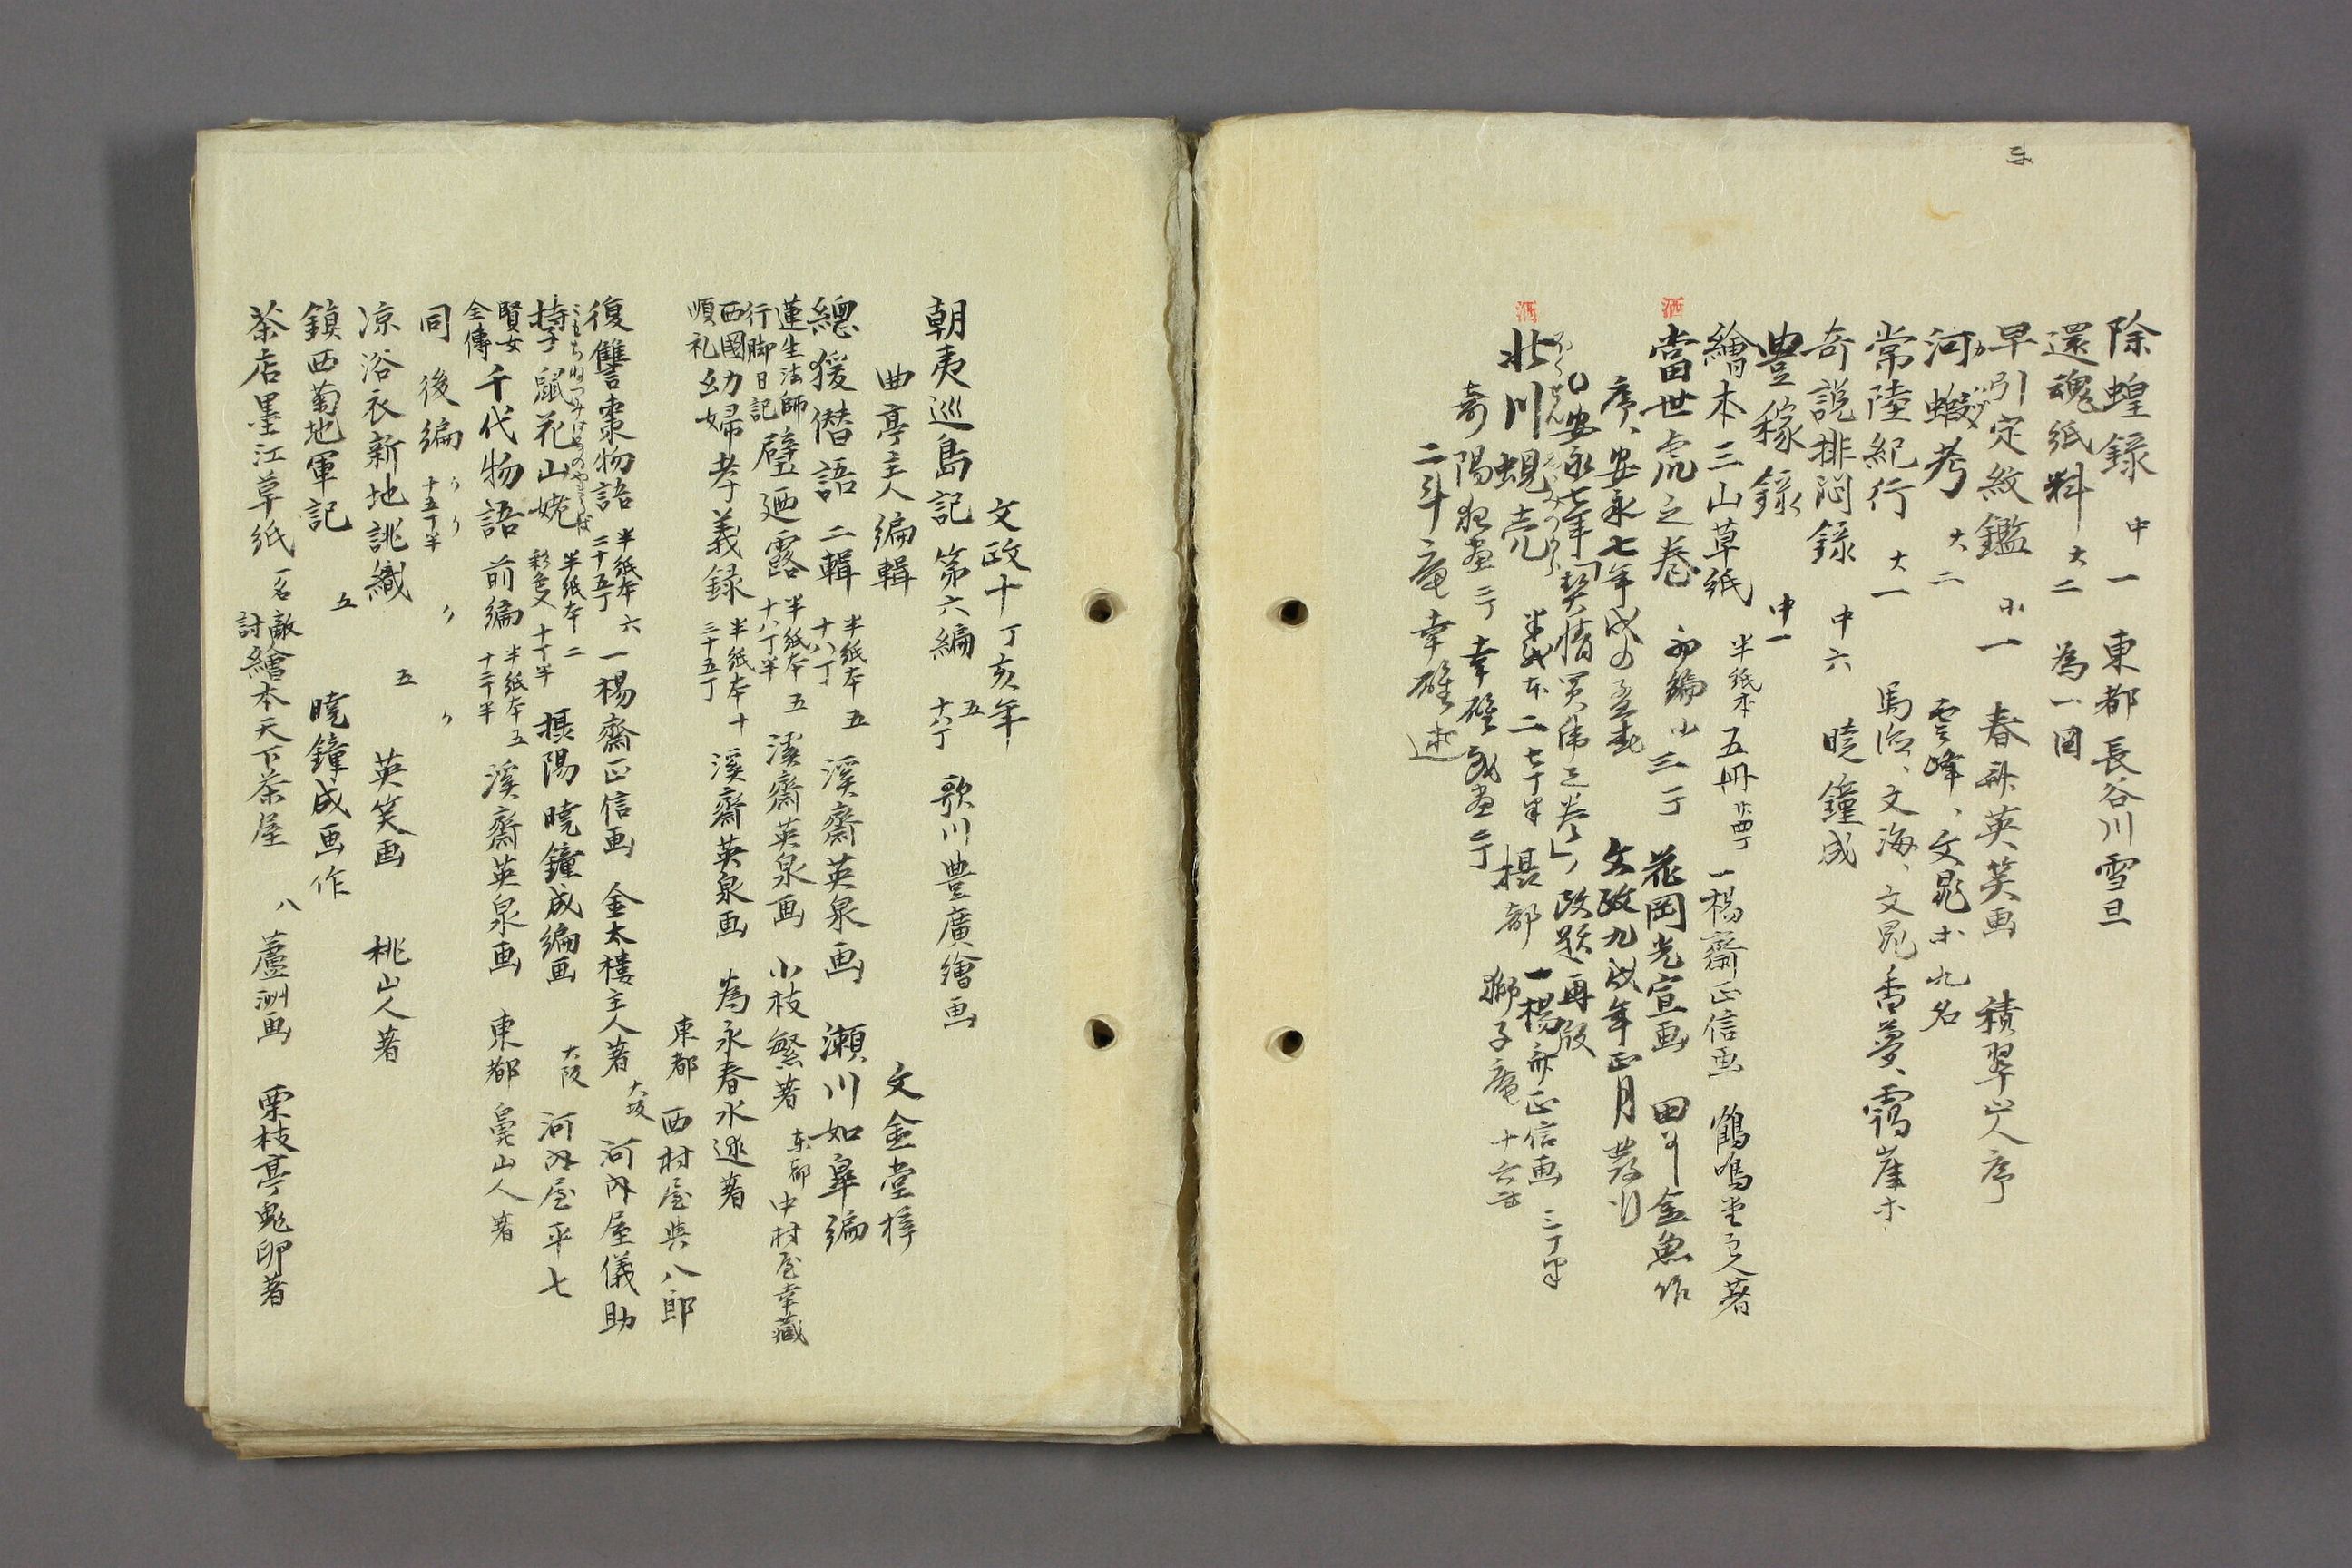 除蝗録 中一 東都 長谷川雪旦
還魂紙料 大二 為一図
早引定紋鑑 小一 春斎英笑画 積翠山人序
河蝦考 大二 雲峰、文晁ホ九名
常陸紀行 大一 馬渓、文海、文晁、香夢、霞崖ホ
奇説排悶録 中六 暁鐘成
豊稼録 中一
繪本三山草紙 半紙本 五冊 廿四丁 一楊齋正信画 鶴鳴堂主人著
酒
當世虎之巻 初編 小 三丁 花岡光宣画 田にし金魚作
序、安永七年戌の孟春 文政九戌年正月発行
安永七年「契情買虎之巻」ノ改題再版
酒
北川蜆壳 半紙本 二七丁半 摂都 一楊斎正信画 三丁半
奇陽狂画 二丁 幸雄武画 二丁 獅子庵
二斗庵幸雄述
文政十丁亥年
朝夷巡島記 第六編 五 十八丁 歌川豊廣繪画
曲亭主人編輯 文金堂梓
總猨僣語 二輯 半紙本 五 十八丁 溪齋英泉画 瀬川如皐編
蓮生法師行脚日記 璧廼露 半紙本 五 十八丁半 溪齋英泉画 小枝繁著 東都 中村屋幸藏
西國順礼 幼婦孝義録 半紙本 十 三十五丁 溪齋英泉画 為永春水遜著
東都 西村屋與八郎
復讐棗物語 半紙本 六 二十五丁 一楊齋正信画 金太樓主人著 大坂 河内屋儀助
こもちねつみはなのやまうば
持子鼠花山姥 半紙本 二 彩色入 十丁半 摂陽 暁鐘成編画 大阪 河内屋平七
賢女全傳 千代物語 前編 半紙本 五 十二丁半 溪齋英泉画 東都 鼻山人著
同 後編 〃 〃 十五丁半 〃 〃
凉浴衣新地誂織 五 英笑画 桃山人著
鎮西菊地軍記 五 暁鐘成画作
茶店墨江草紙 一名 敵討繪本天下茶屋 八 蘆洲画 栗枝亭鬼卵著